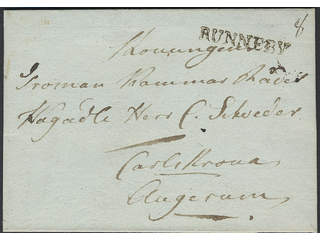 RUNNEBY
Konungens
Troman Kammar Rådet
Högädle Herr C. Schröder
Carls Krona
Augerum